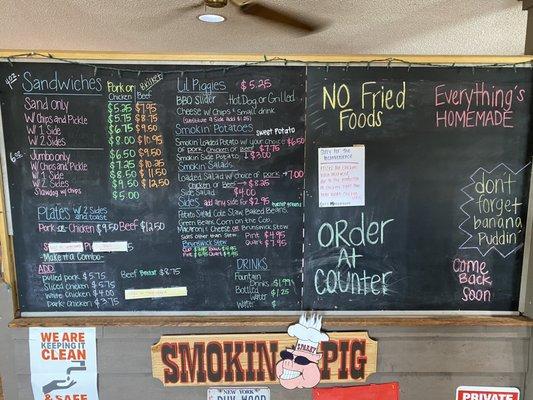 4 oz.
Sandwiches Pork or Chicken Beef or Brisket
Sand only $5.25 $7.95
W/Chips and Pickle $5.75 $8.75
W/1 Side $6.75 $9.50
W/2 Sides $8.00 $10.95
6 oz.
Jumbo only $6.50 $9.50
W/Chips and Pickle $7.25 $10.25
W/1 Side $8.50 $11.50
W/2 Sides $9.50 $12.50
Slawdog w/chips $5.00
Plates w/2 Sides and toast
Pork or Chicken $9.50 Beef $12.50
Make it a Combo
ADD:
pulled pork $5.75 Beef Brisket $8.75
Sliced chicken $5.75
White Chicken $4.00
Dark Chicken $3.75
Lil Piggies $5.25
BBQ Slider, Hot Dog, or Grilled
Cheese w/Chips & Small drink
(Substitute a Side Add $1.25)
Smokin Potatoes Sweet Potato
Smokin Loaded Potato w/your choice $6.50
of pork, Chicken or Beef $7.75
Smokin Side Potato $3.00
Smokin Salads
Loaded Salad w/choice of pork - 7.00
Chicken or Beef - $8.25
Side Salad $4.00
Sides add any side for $2.95
Potato Salad Cole Slaw Baked Beans
Green Beans Corn on the Cob
Macaroni & Cheese or Brunswick Stew
Sides other than Stew Pint $4.95
Quart $7.95
Brunswick Stew
DRINKS
Fountain Drinks $1.99
Bottled Water $1.25
Water $
NO Fried Foods
Everything's HOMEMADE
order AT counter
don't forget banana Puddin
Come Back Soon
WE ARE KEEPING IT CLEAN
& SAFE
SMOKIN PIG
SPARKY
NEW YORK
PRIVATE